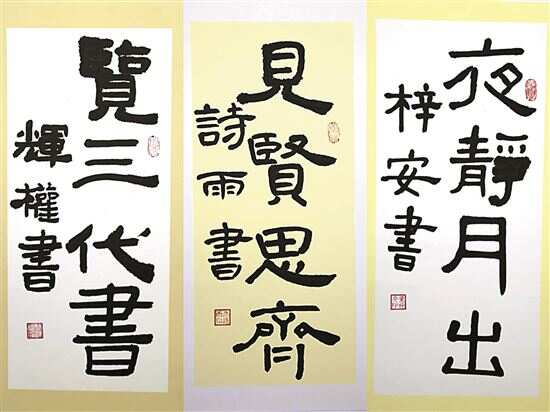 夜靜月出
梓安書
見賢思齊
詩雨書
覽三代書
輝權書